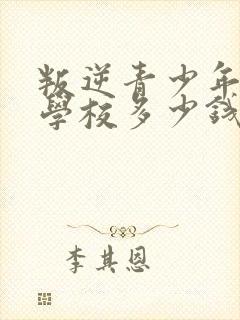 叛逆青少年
學校多少錢
李其恩